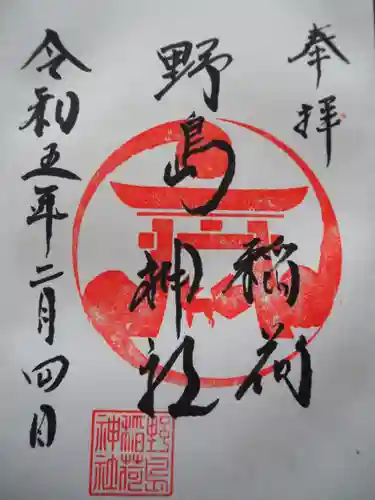 奉拝
稲荷
野島神社
令和五年二月四日
野島
稲荷
神社